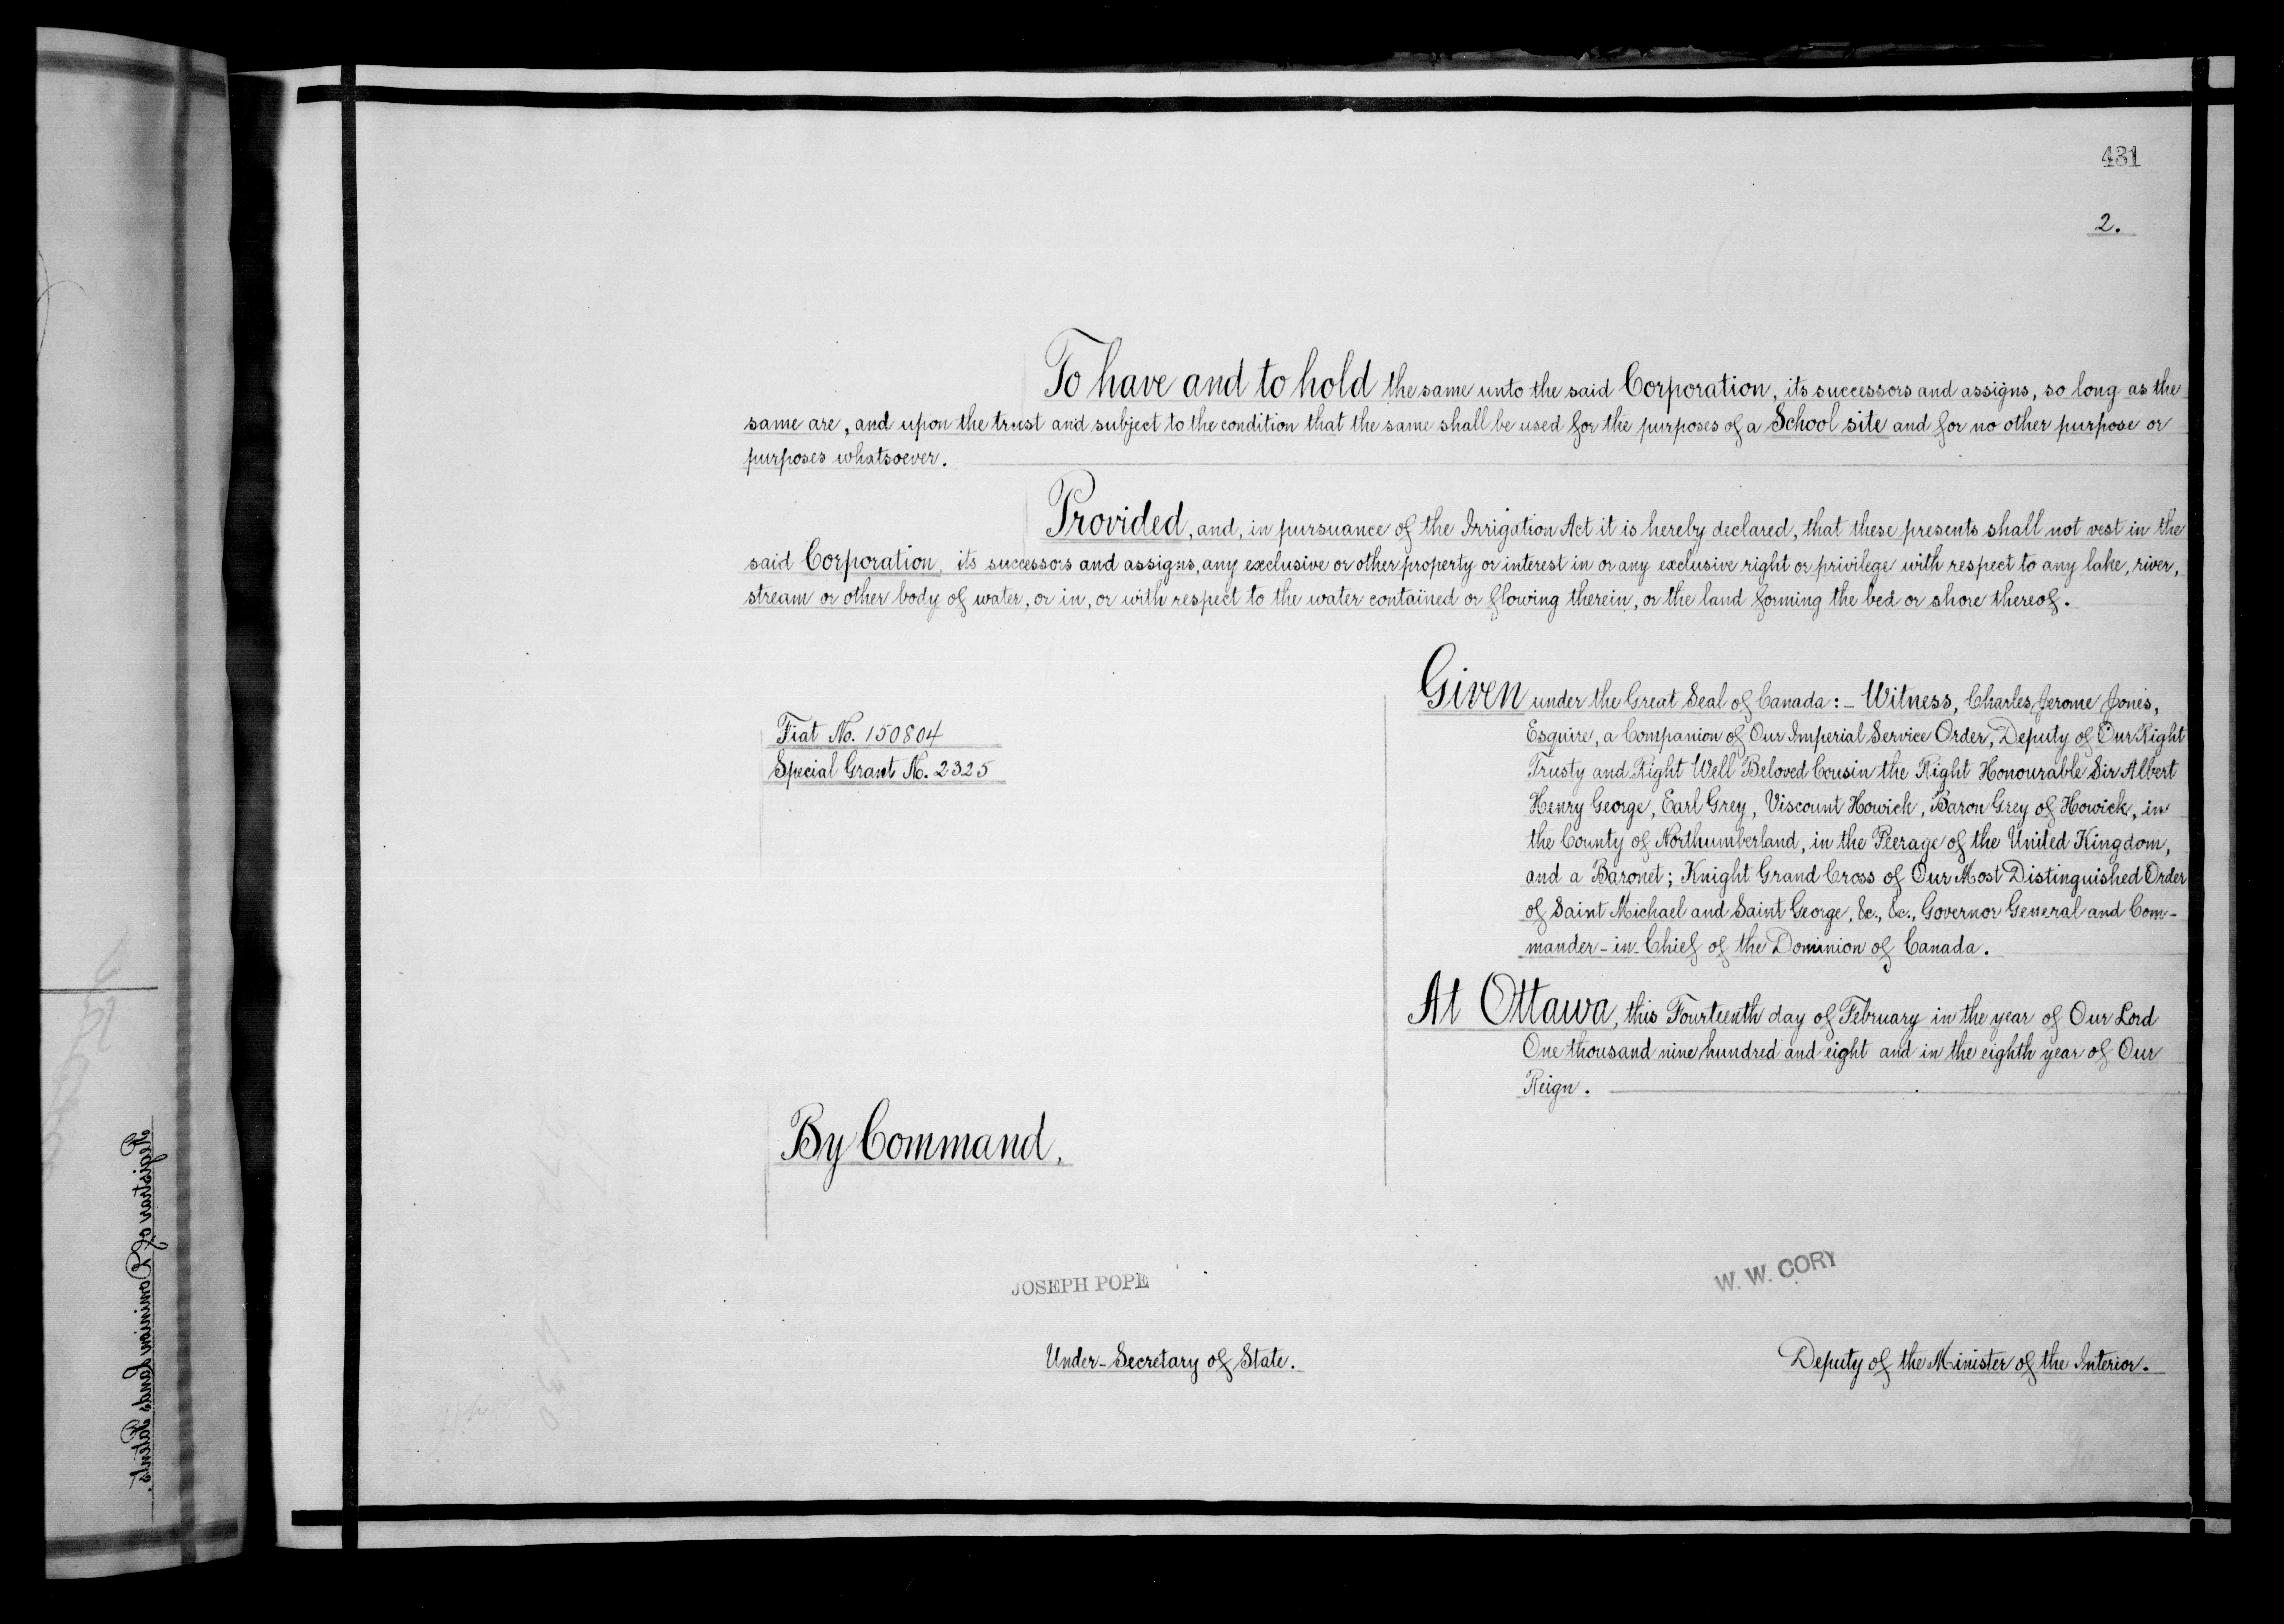 431
2.
To have and to hold the same unto the said Corporation, its successors and assigns, so long as the
same are, and upon the trust and subject to the condition that the same shall be used for the purposes of a School site and for no other purpose or
purposes whatsoever.
Provided, and, in pursuance of the Irrigation Act it is hereby declared, that these presents shall not vest in the
said Corporation, its successors and assigns, any exclusive or other property or interest in or any exclusive right or privilege with respect to any lake, river,
stream or other body of water, or in, or with respect to the water contained or flowing therein, or the land forming the bed or shore thereof.
Fiat No. 150804
Special Grant No. 2325
Given under the Great Seal of Canada:- Witness, Charles Jerome Jones,
Esquire, a Companion of Our Imperial Service Order, Deputy of Our Right
Trusty and Right Well Beloved Cousin the Right Honourable Sir Albert
Henry George, Earl Grey, Viscount Howick, Baron Grey of Howick, in
the County of Northumberland, in the Peerage of the United Kingdom,
and a Baronet; Knight Grand Cross of Our Most Distinguished Order
of Saint Michael and Saint George, &c., &c., Governor General and Com-
mander-in-Chief of the Dominion of Canada.
At Ottawa, this Fourteenth day of February in the year of Our Lord
One thousand nine hundred and eight and in the eighth year of Our
Reign.
By Command,
JOSEPH POPE
Under-Secretary of State.
W. W. CORY
Deputy of the Minister of the Interior.
Registrar of Dominion Lands Patents.